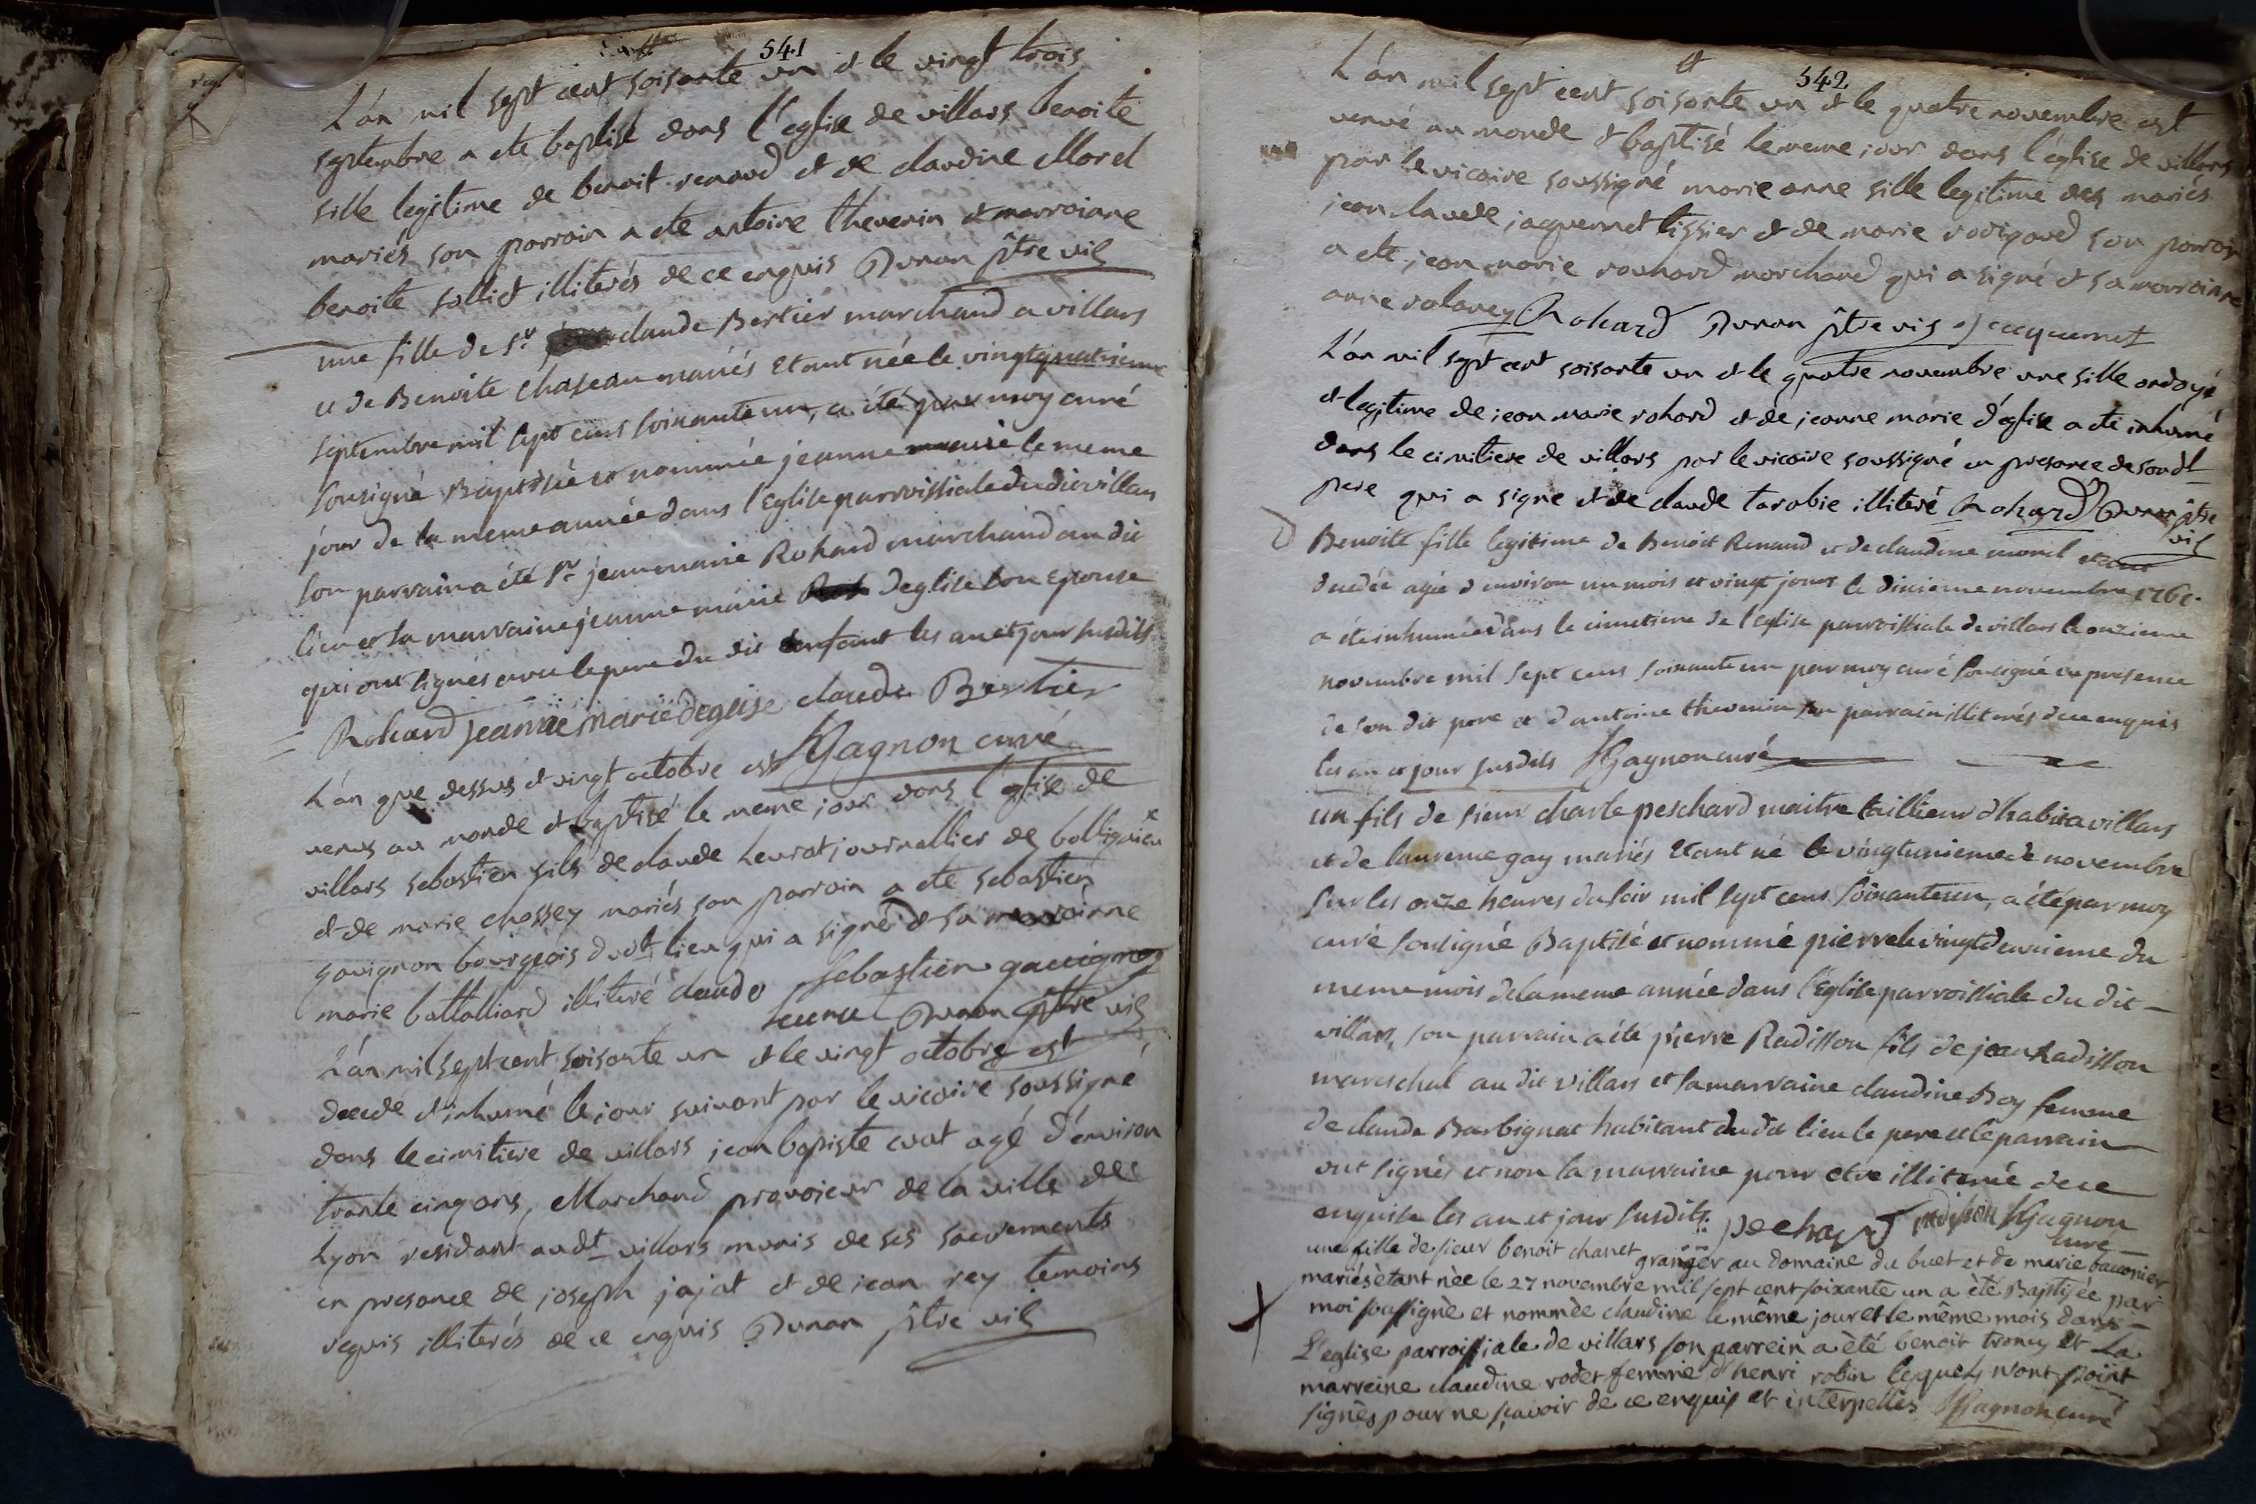 541
L'an mil sept cent soisante un et le vingt trois
septembre a ete baptisé dans l'eglise de villars benoite
fille legitime de benoit renaud et de claudine Morel
mariés son parrain a ete antoine thevenin et marrainne
benoite illiterés de ce enquis Dunan ptre vic
une fille de Sr claude Bertier marchand a villars
et de Benoite Chaseau mariés etant née le vingtquatrieme
septembre mil sept cens soixante un, a été par moy curé
sousigné Baptisée et nommée jeanne marie le meme
jour de la meme année dans l'Eglise parroissiale du dit villars
son parrain a été Sr jean marie Rohard marchand au dit
lieu et la marraine jeanne marie deglise son Epouse
qui ont signés avec le pere du dit enfant les an et jour susdits
Rohard jeanne marie deglise claude Bertier
Gagnon curé
L'an que dessus et vingt octobre est
venus au monde et baptisé le meme jour dans l'eglise de
villars sebastien fils de claude heurat journallier de
et de marie chossey mariés son parrain a ete sebastien
gauignon bourgeois dudt lieu qui a signé et sa marrainne
marie battalliard illiteré claude sebastien gauignon
heurat Dunan ptre vic
L'an mil sept cent soisante un et le vingt octobre est
decede et inhumé le jour suivant par le vicaire soussigné
dans le cimitiere de villars jean baptiste agé d'environ
trante cinq ans, Marchand provoieur de la ville de
Lyon residant audt villars munis de ses sacrements
en presance de joseph jajat et de jean rey temoins
requis illiterés de ce enquis Dunan ptre vic
542
L'an mil sept cent soisante un et le quatre novembre est
venue au monde et baptisé le meme jour dans l'église de villars
par le vicaire soussigné marie anne fille legitime des mariés
jean claude jaquemet tissier et de marie son parrain
a ete jean marie rouhard marchand qui a signé et sa marrainne
anne Rohard Dunan ptre vic jacquemet
L'an mil sept cent soisante un et le quatre novembre une fille ondoyé
et legitime de jean marie rohard et de jeanne marie d'église a ete inhumé
dans le cimitiere de villars par le vicaire soussigné en presance de soudt
pere qui a signe et de claude tarabie illiteré Rohard Dunan ptre
vic
Benoite fille legitime de Benoit Renaud et de claudine morel etant
decedée agée d'environ un mois et vingt jours le dixieme novembre 1761.
a été inhumée dans le cimetiere de l'eglise parroissiale de villars le onzieme
novembre mil sept cens soixante un par moy curé sousigné en presence
de son dit pere et d'antoine thevenin son parrain illiterés de ce enquis
les an et jour susdits Gagnon curé
un fils de sieur charle peschard maitre taillieur d'habits a villars
et de laurence gay mariés etant né le vingtunieme de novembre
sur les onze heures du soir mil sept cens soixante un, a été par moy
curé sousigné Baptisé et nommé pierre le vingtdeuxieme du
meme mois de la meme année dans l'Eglise parroissiale du dit
villars, son parrain a été pierre Radisson fils de jean Radisson
mareschal au dit villars et la marraine claudine Boy femme
de claude Barbignat habitant du dit lieu le pere et le parrain
ont signés et non la marraine pour etre illiterée de ce
enquise les an et jour susdits. pechard radisson Gagnon
curé
une fille de sieur benoit chanet granger au domaine du buet et de marie bauonier
mariés ètant nèe le 27 novembre mil sept cent soixante un a ètè Baptisèe par
moi soussignè et nommèe claudine le même jour et le même mois dans
L'eglise parroissiale de villars son parrein a ètè benoit troncy et La
marreine claudine rodet femme d'henri robin lequels n'ont point
signès pour ne scavoir de ce enquis et interpellès Gagnon curé